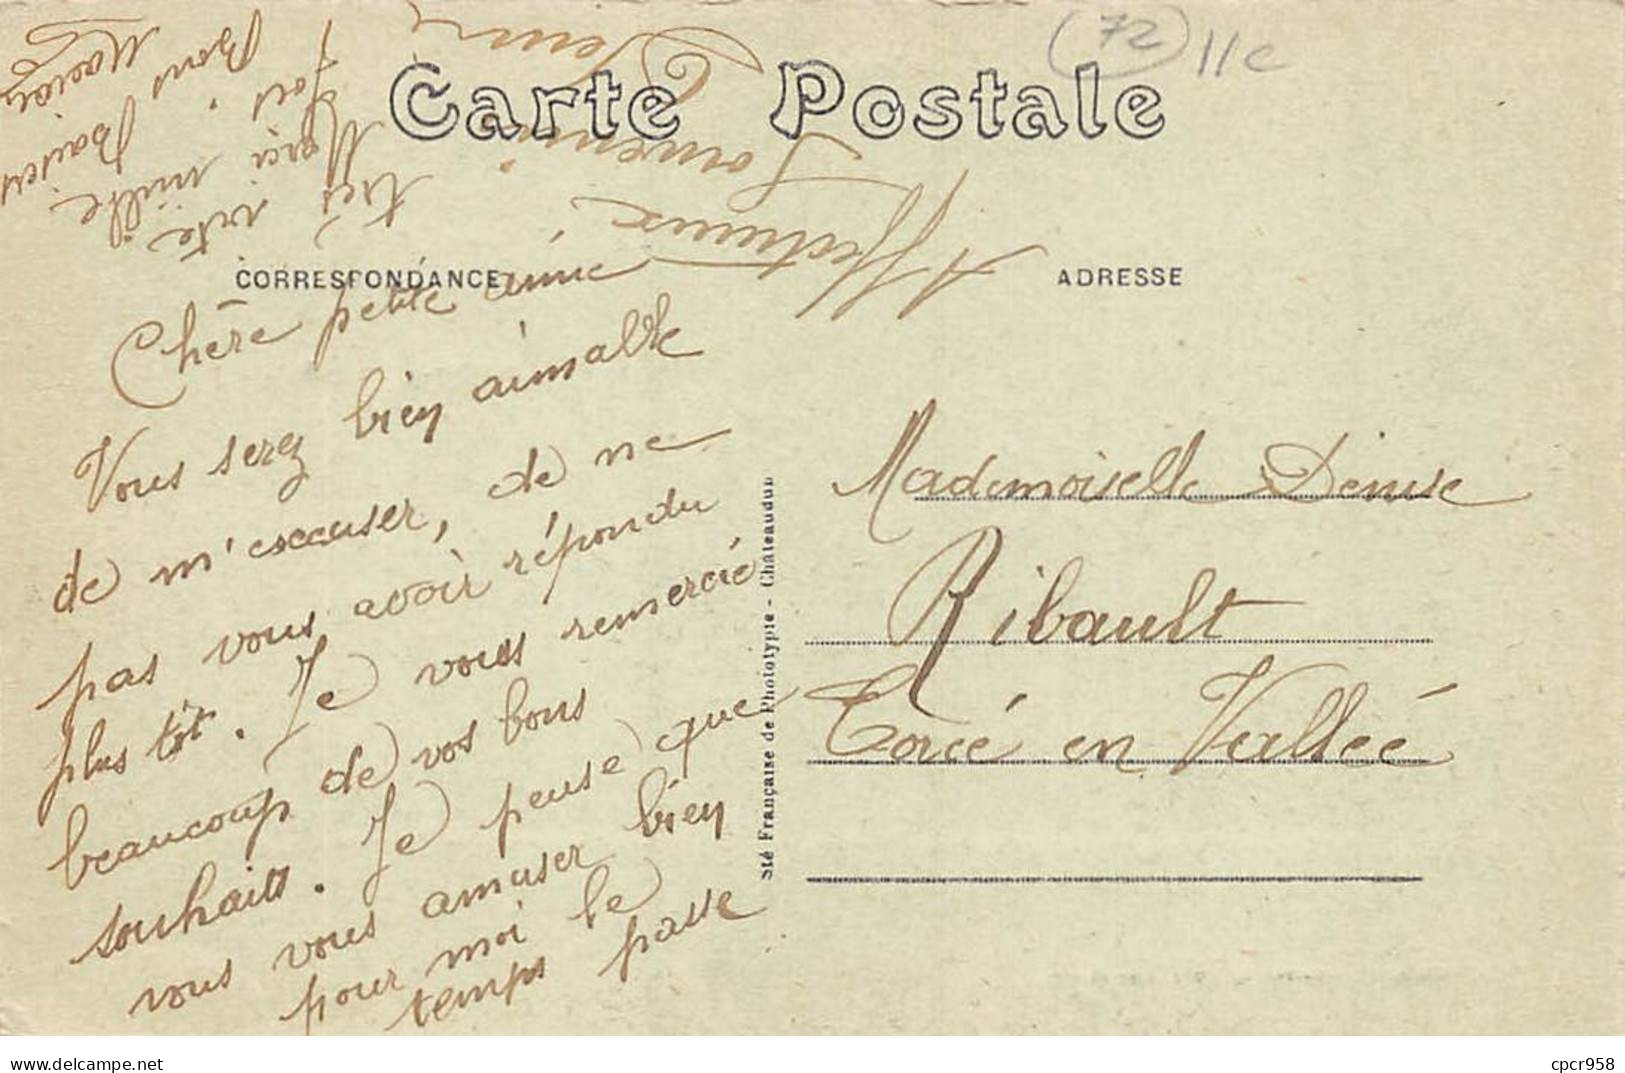 (72) 11e
Carte Postale
CORRESPONDANCE
ADRESSE
Chère petite amie
Vous serez bien aimable
de m'excuser, de ne
pas vous avoir répondu
plus tôt. Je vous remercie
beaucoup de vos bons
souhaits. Je pense que
vous vous amuser bien
pour moi le
temps passe
très vite
Merci mille
fois
Bons Baisers
Affectueux
Souvenir
Mademoiselle Denise
Ribault
Torcé en Vallée
Sté Française de Phototypie - Châteaudun
delcampe.net
cpcr958